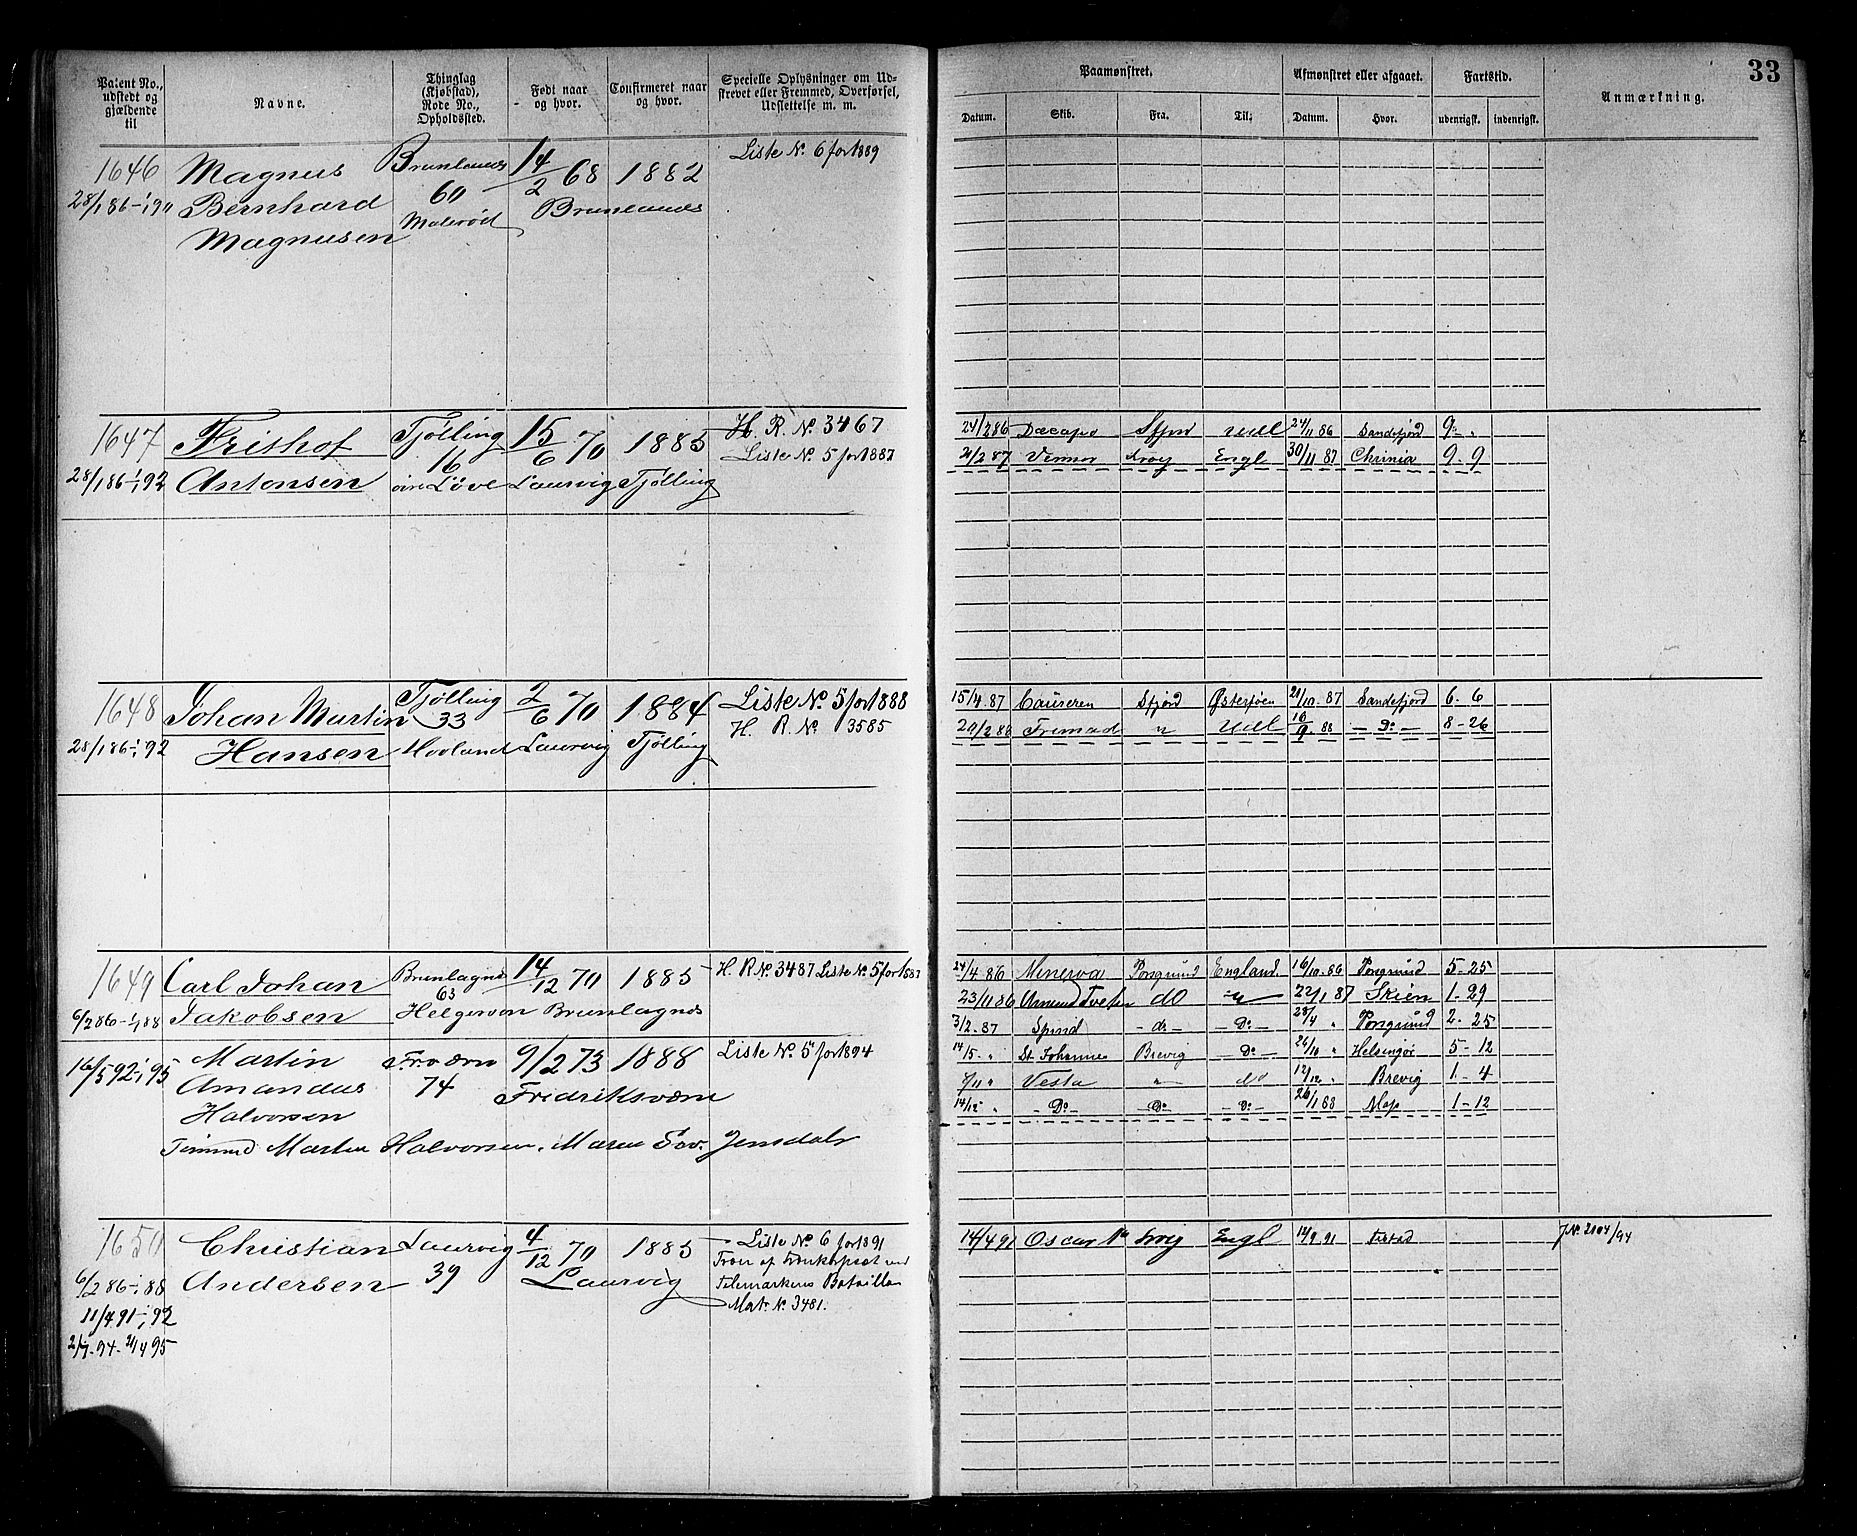 33
Patent No., udstedt og gjældende til
Navne.
Thinglag (Kjøbstad), Rode No., Opholdssted.
Født naar og hvor.
Confirmeret naar og hvor.
Specielle Oplysninger om Udskrevet eller Fremmed, Overførsel, Udslettelse m. m.
Paamønstret.
Afmønstret eller afgaaet.
Fartstid.
Anmærkning.
Datum. Skib. Fra. Til. Datum. Hvor. udenrigsk. indenrigsk.
1646 Magnus Brunlanes 14/2 68 1882 Liste No. 6 for 1889
28/1 86 - 1/1 90 Bernhard 60 Brunlanes
Magnusen
1647 Frithof Tjølling 15/6 70 1885 H. R. No. 3467
16 Liste No. 5 for 1887
28/1 86 - 1/1 92 Antonsen Løve Laurvig Tjølling
24/2 86 Dacapo Sfjord 24/11 86 Sandefjord 9 - "
21/2 87 Engl 30/11 87 Chrinia 9 - 9
1648 Johan Martin Tjølling 2/6 70 1884 Liste No. 5 for 1888
33 H. R. No. 3585
28/1 86 - 1/1 92 Hansen Hovland Laurvig Tjølling
15/4 87 Sfjord Østersøen 21/10 87 Sandefjord 6 - 6
29/2 88 Fremad " 18/9 88 - Do - 8 - 26
1649 Carl Johan Brunlagnes 14/12 70 1885 H. R. No. 3487 Liste No. 5 for 1887
63
6/2 86 - 1/1 88 Jakobsen Helgeroen Brunlagnes
16/5 92 - 1/1 95 Martin Fr.værn 9/2 73 1888 Liste No. 5 for 1894
Amandus 74 Fredriksværn
Halvorsen
Tømmd Martin Halvorsen, Maren Jensdatr
24/4 86 Minerva Porsgrund England 16/10 86 Porsgrund 5 - 25
23/11 86 do " 22/1 87 Skien 1 - 29
3/2 87 Spind - do - - Do - 28/4 " Porsgrund 2 - 25
14/5 " St Johannes Brevig - Do - 26/10 " Helsingør 5 - 12
7/11 " Vesta " do 12/12 " Brevig 1 - 4
14/12 " - Do - - Do - - Do - 26/1 88 1 - 12
1650 Christian Laurvig 4/12 70 1885 Liste No. 6 for 1891
6/2 86 - 1/1 88 Andersen 39 Laurvig Telemarkens Bataillon
11/4 91 - 1/1 92 Mat. No. 3481.
2/7 94 - 21/4 95
14/4 91 Oscar Engl 12/9 91 J No. 2104/94